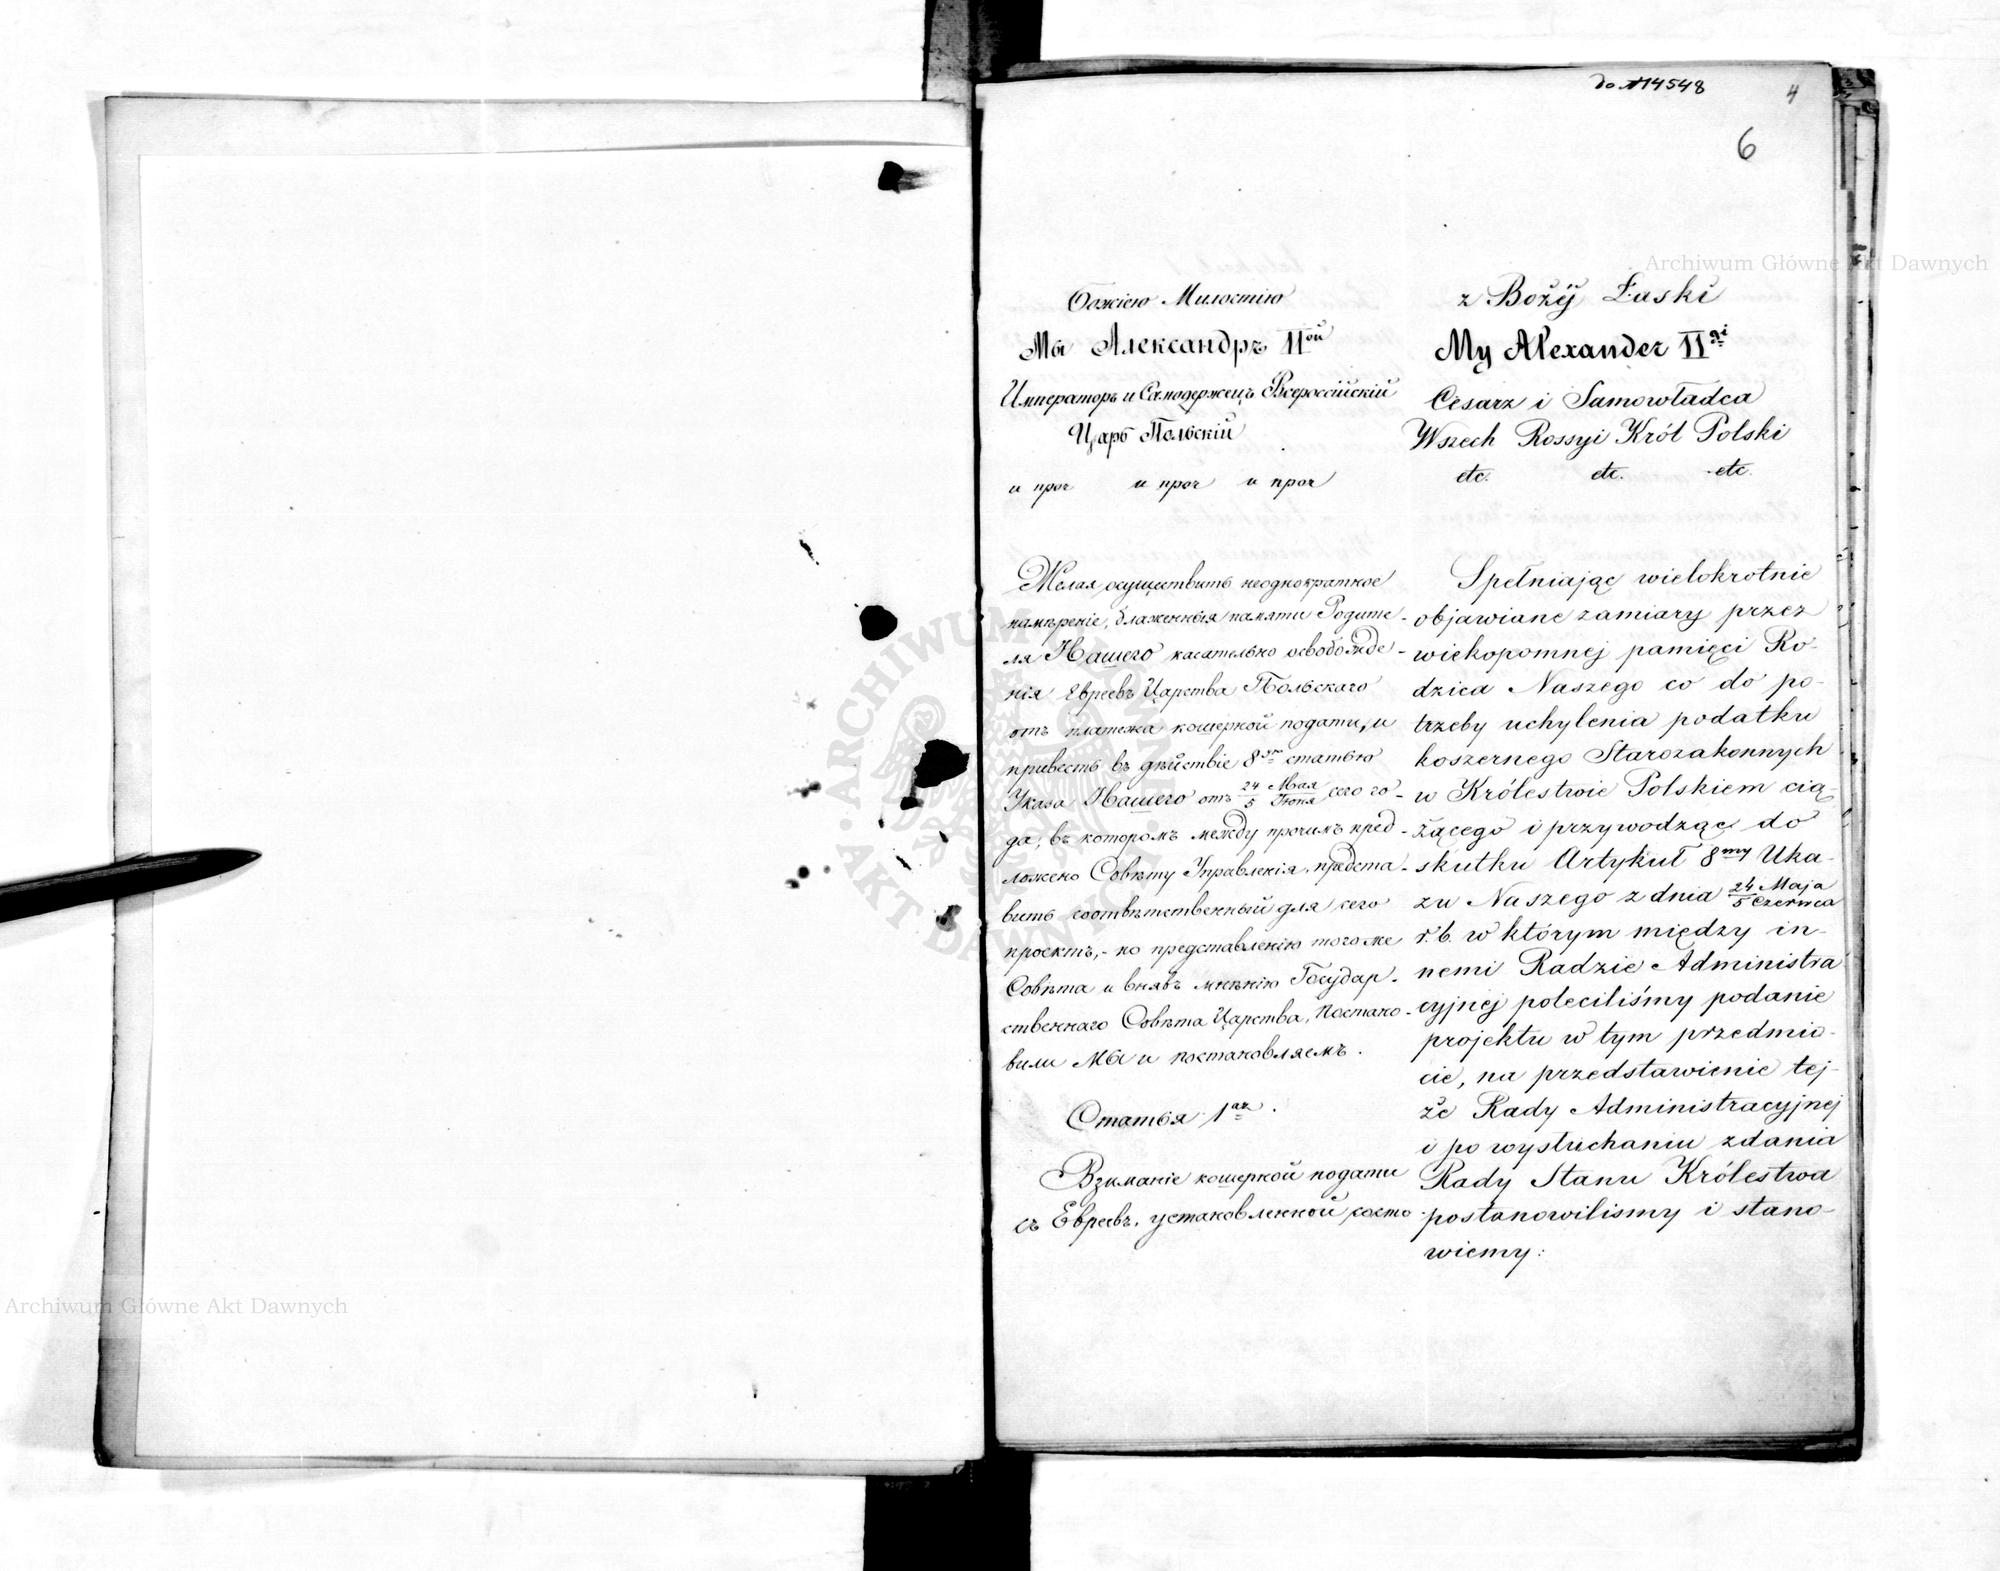 до №14548
4
6
Божіею Милостію
Мы Александръ IIой
Императоръ и Самодержецъ Всероссійскій
Царь Польскій
и проч и проч и проч
Желая осуществить неоднократное
намѣреніе, блаженныя памяти Родите-
ля Нашего касательно освобожде-
нія Евреевъ Царства Польскаго
отъ платежа кошерной подати, и
привесть въ дѣйствіе 8ую статью
Указа Нашего отъ 24 Мая / 5 Іюня сего го-
да, въ которомъ между прочимъ пред-
ложено Совѣту Управленія, предста-
вить соотвѣтственный для сего
проектъ,- по представленію того же
Совѣта и внявъ мнѣнію Государ-
ственнаго Совѣта Царства, Постано-
вили Мы и постановляемъ.
Статья 1ая.
Взиманіе кошерной подати
съ Евреевъ, установленной посто-
z Bożéj Łaski
My Alexander IIgi
Cesarz i Samowładca
Wszech Rossyi Król Polski
etc. etc. etc.
Spełniając wielokrotnie
objawiane zamiary przez
wiekopomnej pamięci Ro-
dzica Naszego co do po-
trzeby uchylenia podatku
koszernego Starozakonnych
w Królestwie Polskiem cią-
żącego i przywodząc do
skutku Artykuł 8my Uka-
zu Naszego z dnia 24 Maja / 5 Czerwca
r. b. w którym między in-
nemi Radzie Administra
cyjnej poleciliśmy podanie
projektu w tym przedmio-
cie, na przedstawienie tej-
że Rady Administracyjnej
i po wysłuchaniu zdania
Rady Stanu Królestwa
postanowilismy i stano-
wiemy:
Archiwum Główne Akt Dawnych
Archiwum Główne Akt Dawnych
ARCHIWUM GŁÓWNE AKT DAWNYCH